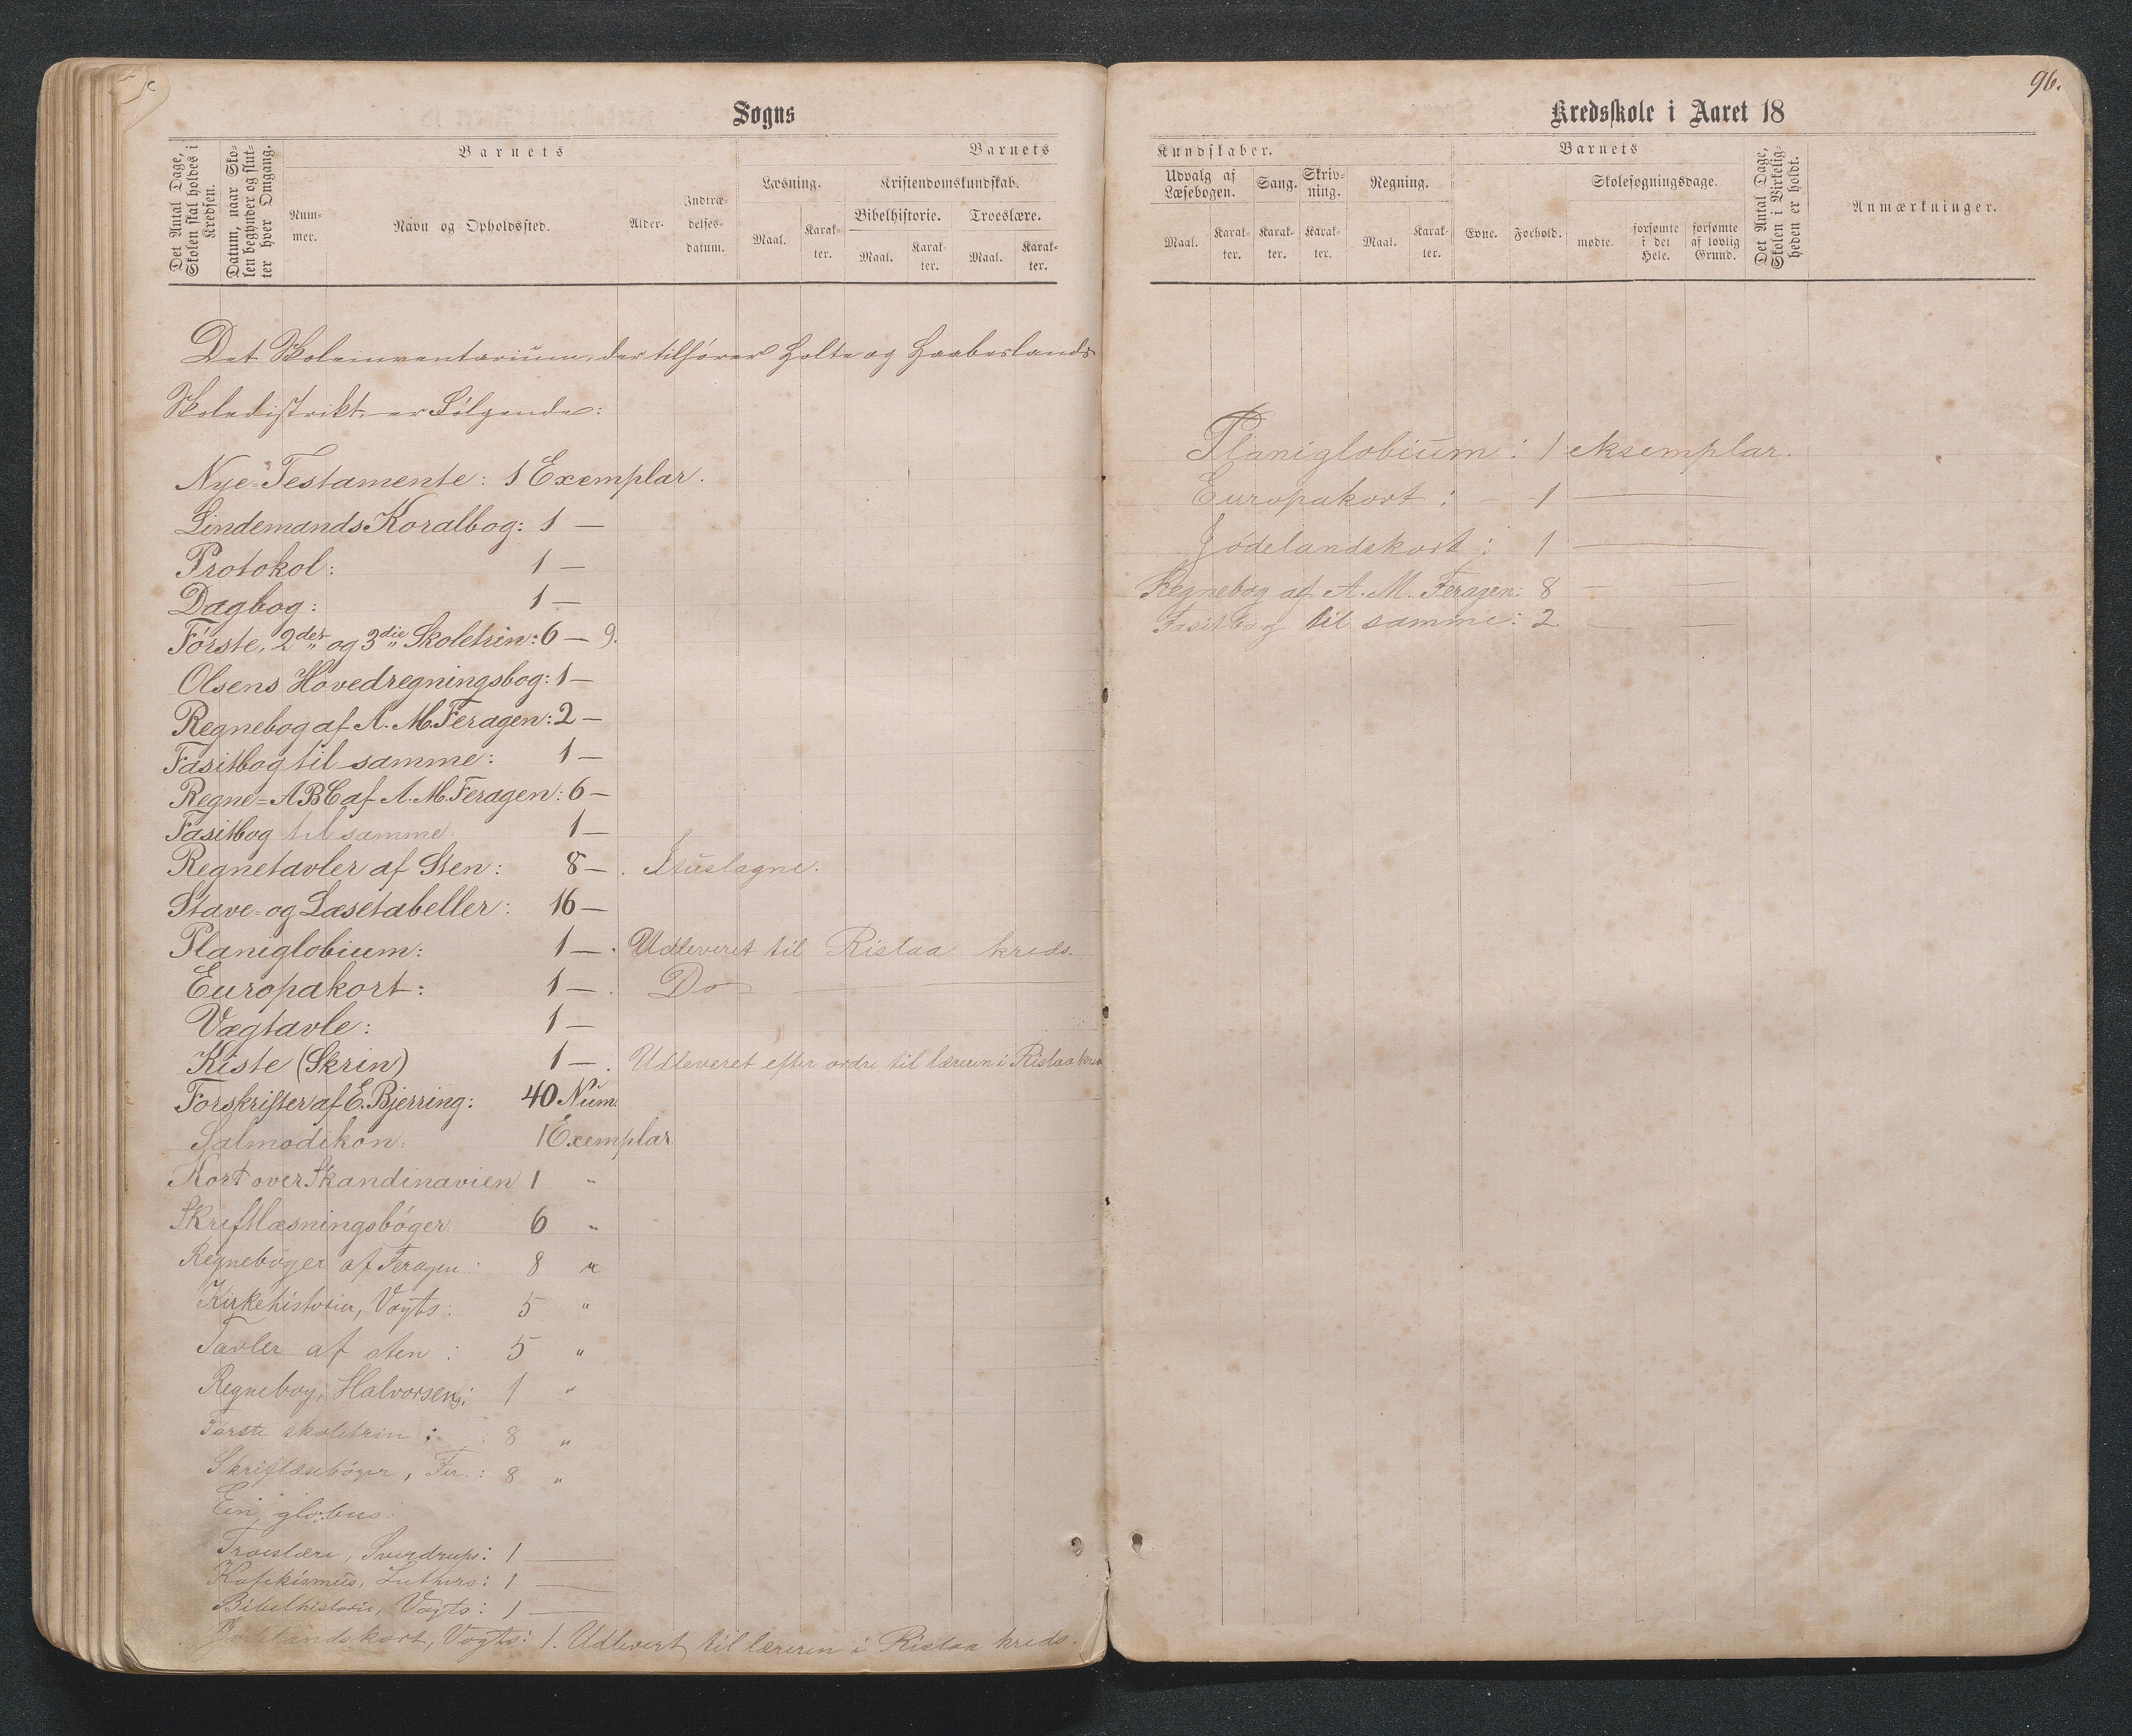 Sogns
Det Antal Dage, Skolen skal holdes i Kredsen.
Datum, naar Skolen begynder og slutter hver Omgang.
Barnets
Barnets
Nummer.
Navn og Opholdssted.
Alder.
Indtrædelsesdatum.
Læsning.
Kristendomskundskab.
Bibelhistorie.
Troeslære.
Maal.
Karakter.
Maal.
Karakter.
Maal.
Karakter.
Det Skoleinventarium, der tilhører Holte og Haabeslands
Skoledistrikt, er Følgende:
Nye-Testamente: 1 Exemplar.
Lindemands Koralbog: 1 —
Protokol: 1 —
Dagbog: 1 —
Første, 2det og 3die Skoletrin: 6 — 9.
Olsens Hovedregningsbog: 1 —
Regnebog af A. M. Feragen: 2 —
Fasitbog til samme: 1 —
Regne=ABC af A. M. Feragen: 6 —
Fasitbog til samme. 1 —
Regnetavler af Sten: 8 — . Ituslagne.
Stave- og Læsetabeller: 16 —
Planiglobium: 1 — . Udleveret til Rislaa kreds.
Europakort: 1 — . Do —
Vægtavle: 1 —
Kiste (Skrin) 1 — . Udleveret efter ordre til læreren i Rislaa kreds
Forskrifter af E. Bjerring: 40 Num.
Salmodikon: 1 Exemplar
Kort over Skandinavien 1 "
Skriftlæsningsbøger 6 "
Regnebøger af Feragen: 8 "
Kirkehistorier, Vogts: 5 "
Tavler af sten: 5 "
Regnebog, Halvorsens: 1 "
Første skoletrin: 8 "
Skriftlæsebøger, Fer.: 8 "
Ein globus:
Troeslære, Sverdrups: 1 —
Katekismus, Luthers: 1 —
Bibelhistorie, Vogts: 1 —
Jødelandskort, Vogts: 1. Udlevert til læreren i Rislaa kreds.
96.
Kredsskole i Aaret 18
Kundskaber.
Barnets
Udvalg af Læsebogen.
Sang.
Skrivning.
Regning.
Skolesøgningsdage.
Det Antal Dage, Skolen i Virkeligheden er holdt.
Anmærkninger.
Maal.
Karakter.
Karakter.
Karakter.
Maal.
Karakter.
Evne.
Forhold.
mødte.
forsømte i det Hele.
forsømte af lovlig Grund.
Planiglobium: 1 eksemplar.
Europakort: — 1 —
Jødelandskort: 1 —
Regnebog af A. M. Feragen: 8 — —
Fasitbog til samme: 2 — —